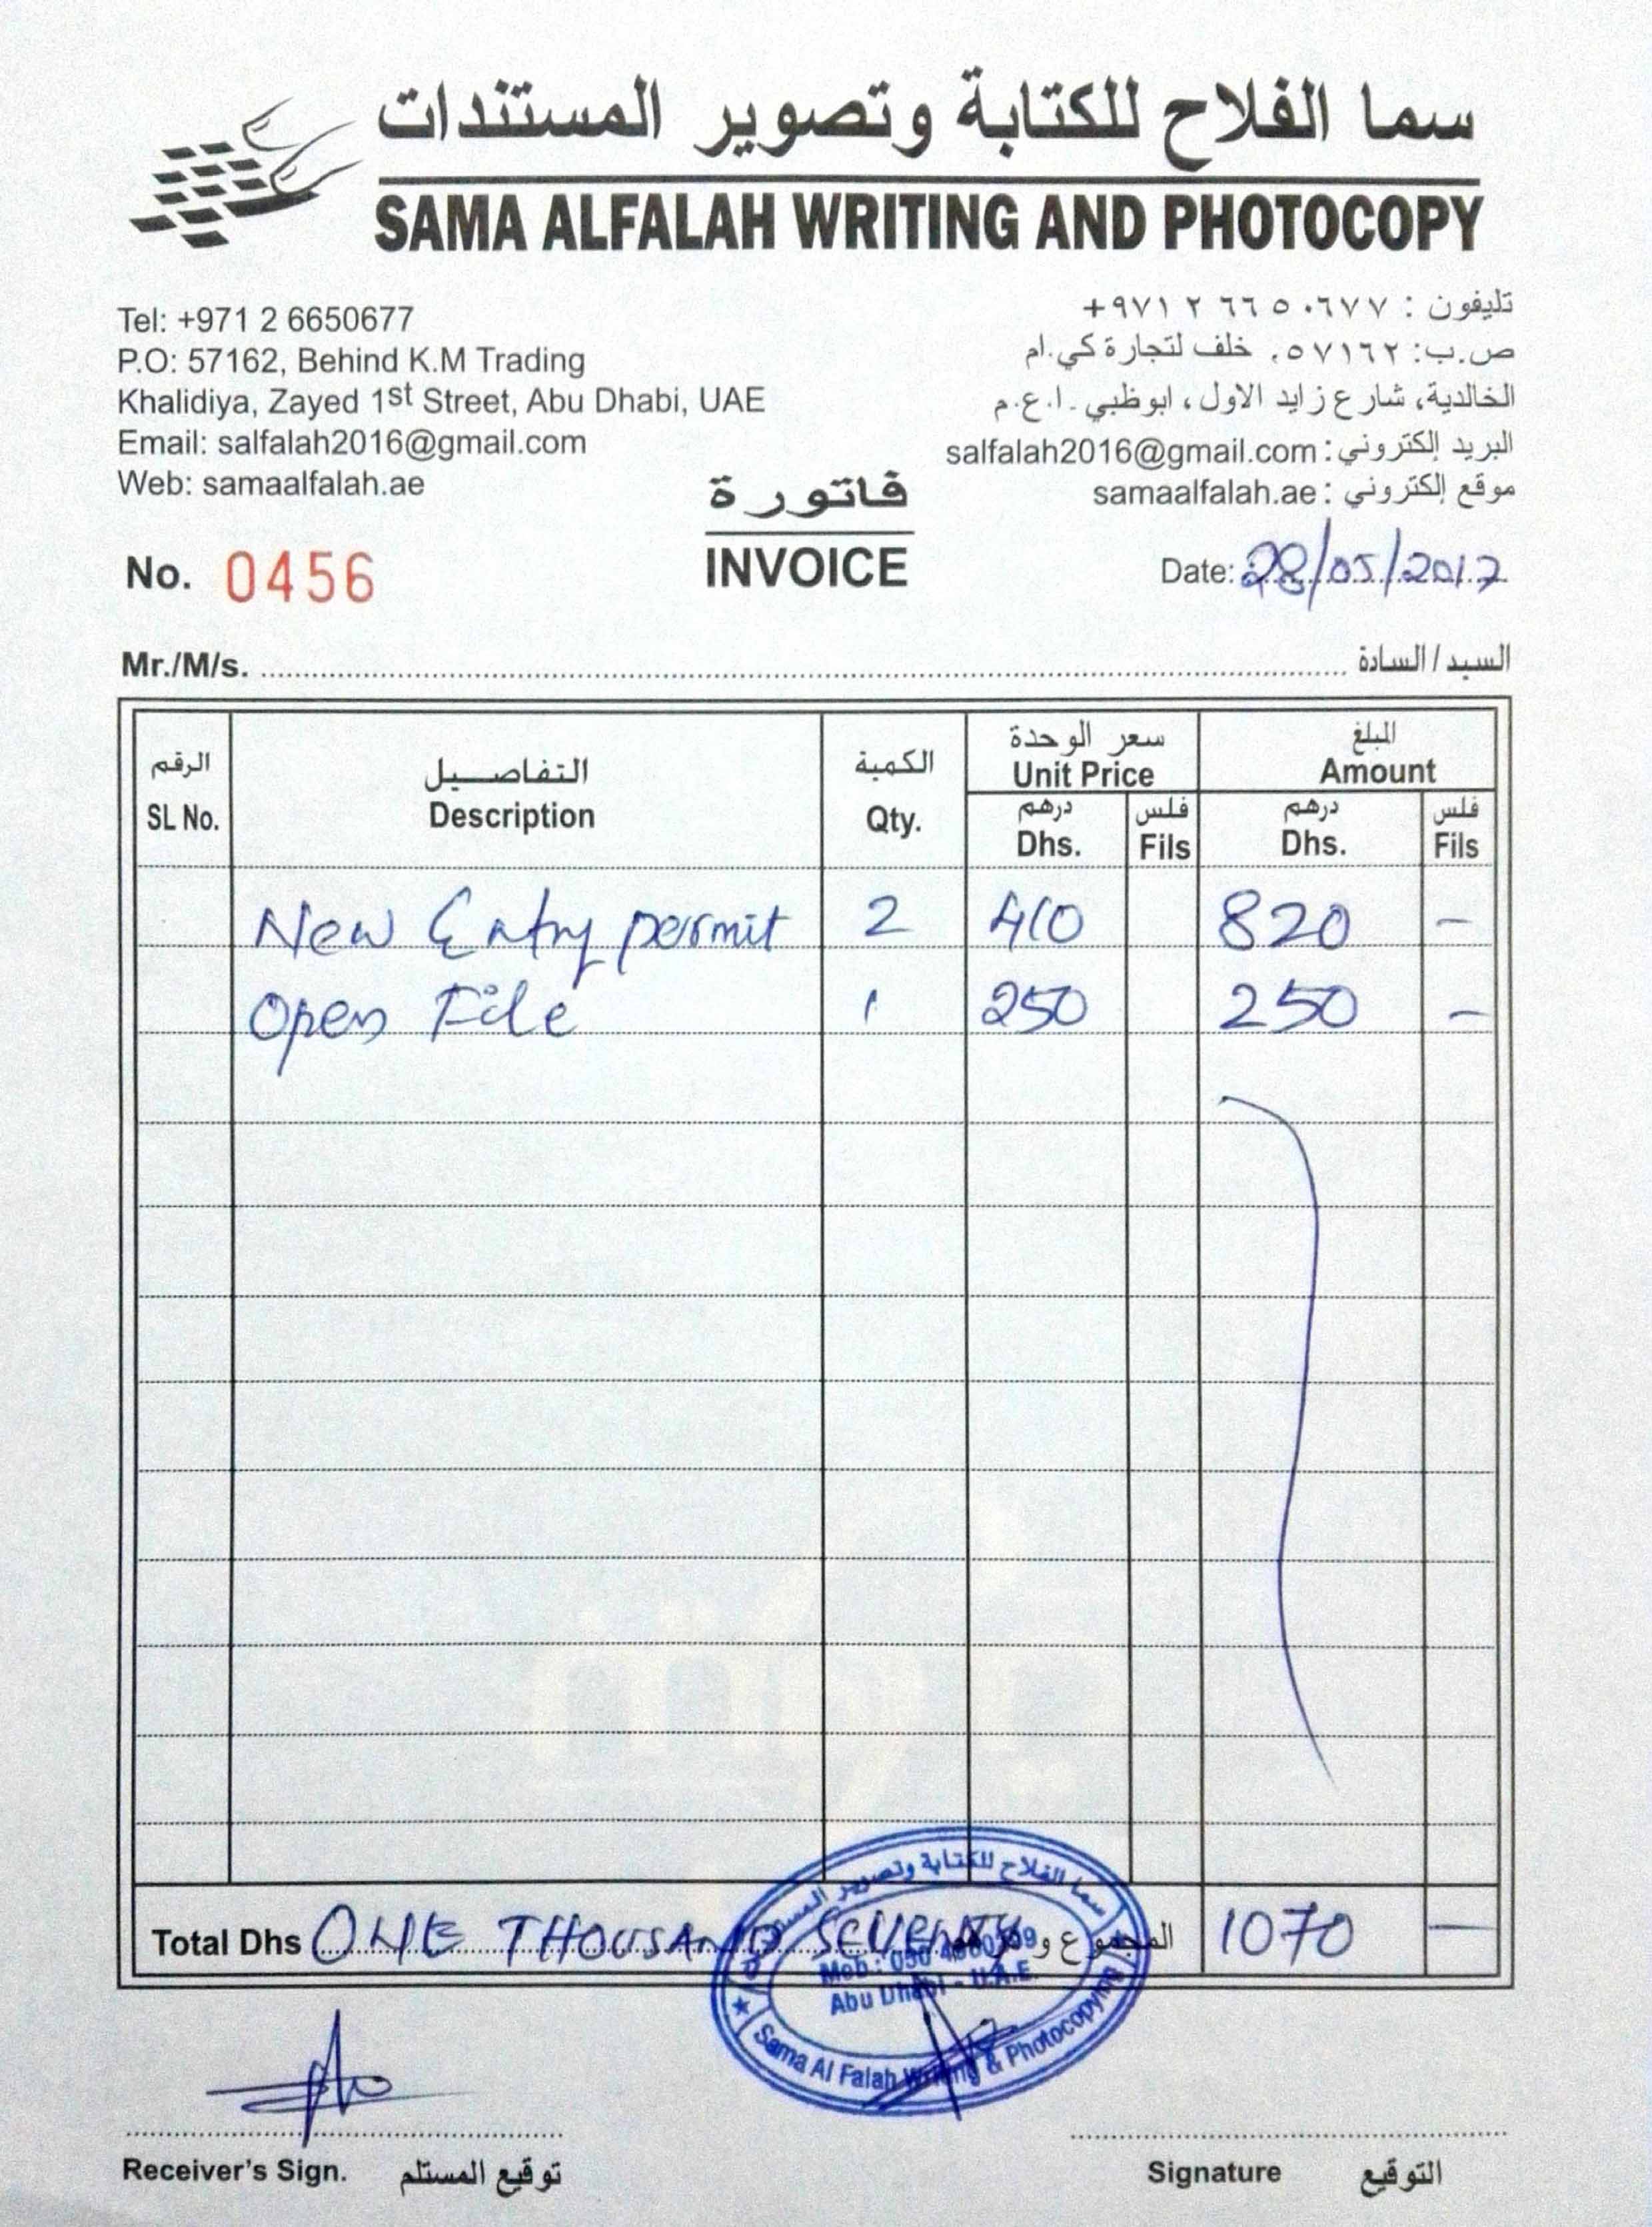 سما الفلاح للكتابة وتصوير المستندات
SAMA ALFALAH WRITING AND PHOTOCOPY
Tel: +971 2 6650677
P.O: 57162, Behind K.M Trading
Khalidiya, Zayed 1st Street, Abu Dhabi, UAE
Email: salfalah2016@gmail.com
Web: samaalfalah.ae
تليفون : ٦٦٥٠٦٧٧ ٢ ٩٧١+
ص.ب: ٥٧١٦٢، خلف لتجارة كي.ام
الخالدية، شارع زايد الاول، ابوظبي ـ ا.ع.م
البريد إلكتروني: salfalah2016@gmail.com
موقع إلكتروني: samaalfalah.ae
فاتورة
INVOICE
No. 0456
Date: 28/05/2017
Mr./M/s. السيد / السادة
الرقم التفاصيل الكمية سعر الوحدة المبلغ
SL No. Description Qty. Unit Price Amount
درهم فلس درهم فلس
Dhs. Fils Dhs. Fils
New Entry permit 2 410 820 -
Open File 1 250 250 -
Total Dhs ONE THOUSAND SEVENTY المجموع 1070 -
سما الفلاح للكتابة وتصوير
Mob.: 050
Abu Dhabi - U.A.E.
Sama Al Falah Writing & Photocopying
Receiver's Sign. توقيع المستلم
Signature التوقيع